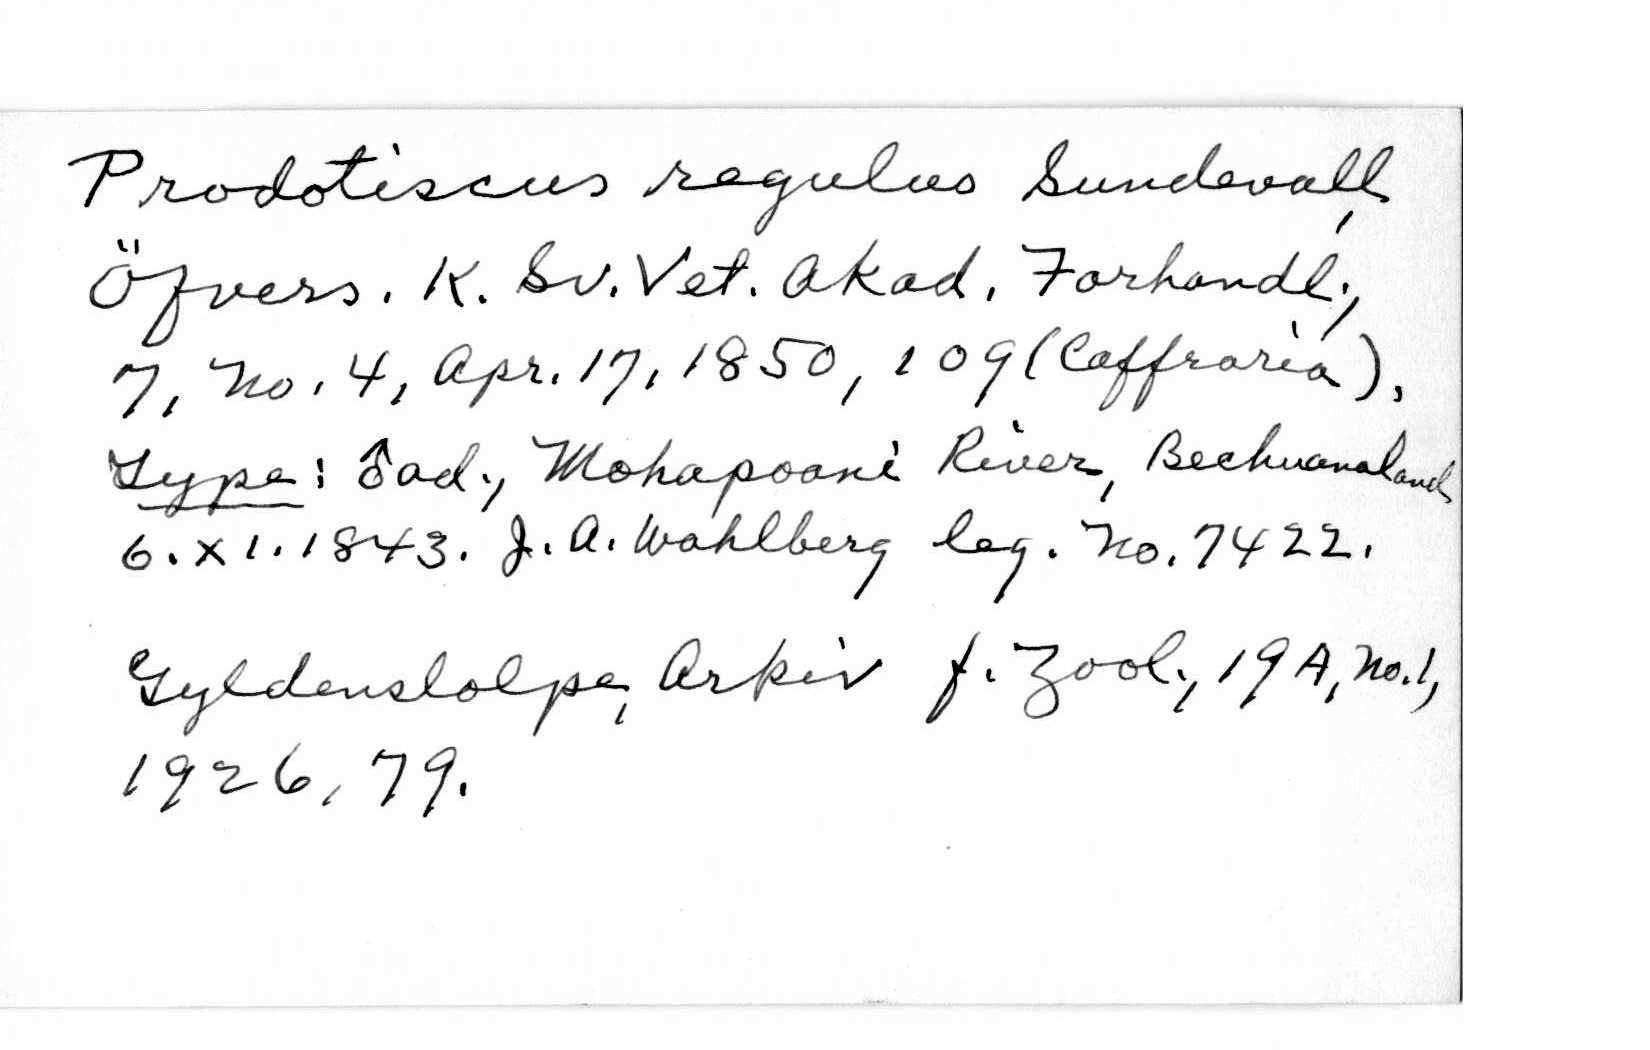 Prodotiscus regulus Sundevall,
Öfvers. K. Sv. Vet. Akad. Forhandl.,
7, No. 4, Apr. 17, 1850, 109 (Caffraria).
Type: ♂ ad., Mohapoani River, Bechuanaland
6.XI.1843. J.A. Wahlberg leg. No. 7422.
Gyldenstolpe, Arkiv f. Zool., 19A, No. 1,
1926, 79.